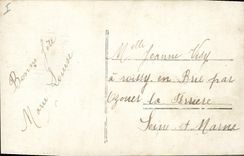 Bonne fête
Marie Louise
Melle Jeanne
à Roissy en Brie par
Ozouer la Ferrière
Seine et Marne